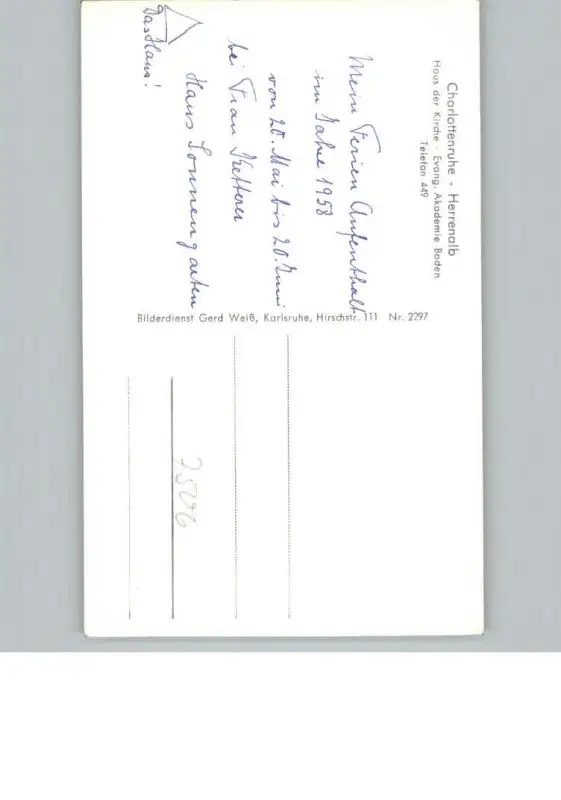 Charlottenruhe - Herrenalb
Haus der Kirche · Evang. Akademie Baden
Telefon 449
Mein Ferien Aufenthalt
im Jahre 1958
von 20. Mai bis 20. Juni
bei Frau Ketterer
Haus Sonnengarten
Das Haus!
Bilderdienst Gerd Weiß, Karlsruhe, Hirschstr. 111 Nr. 2297